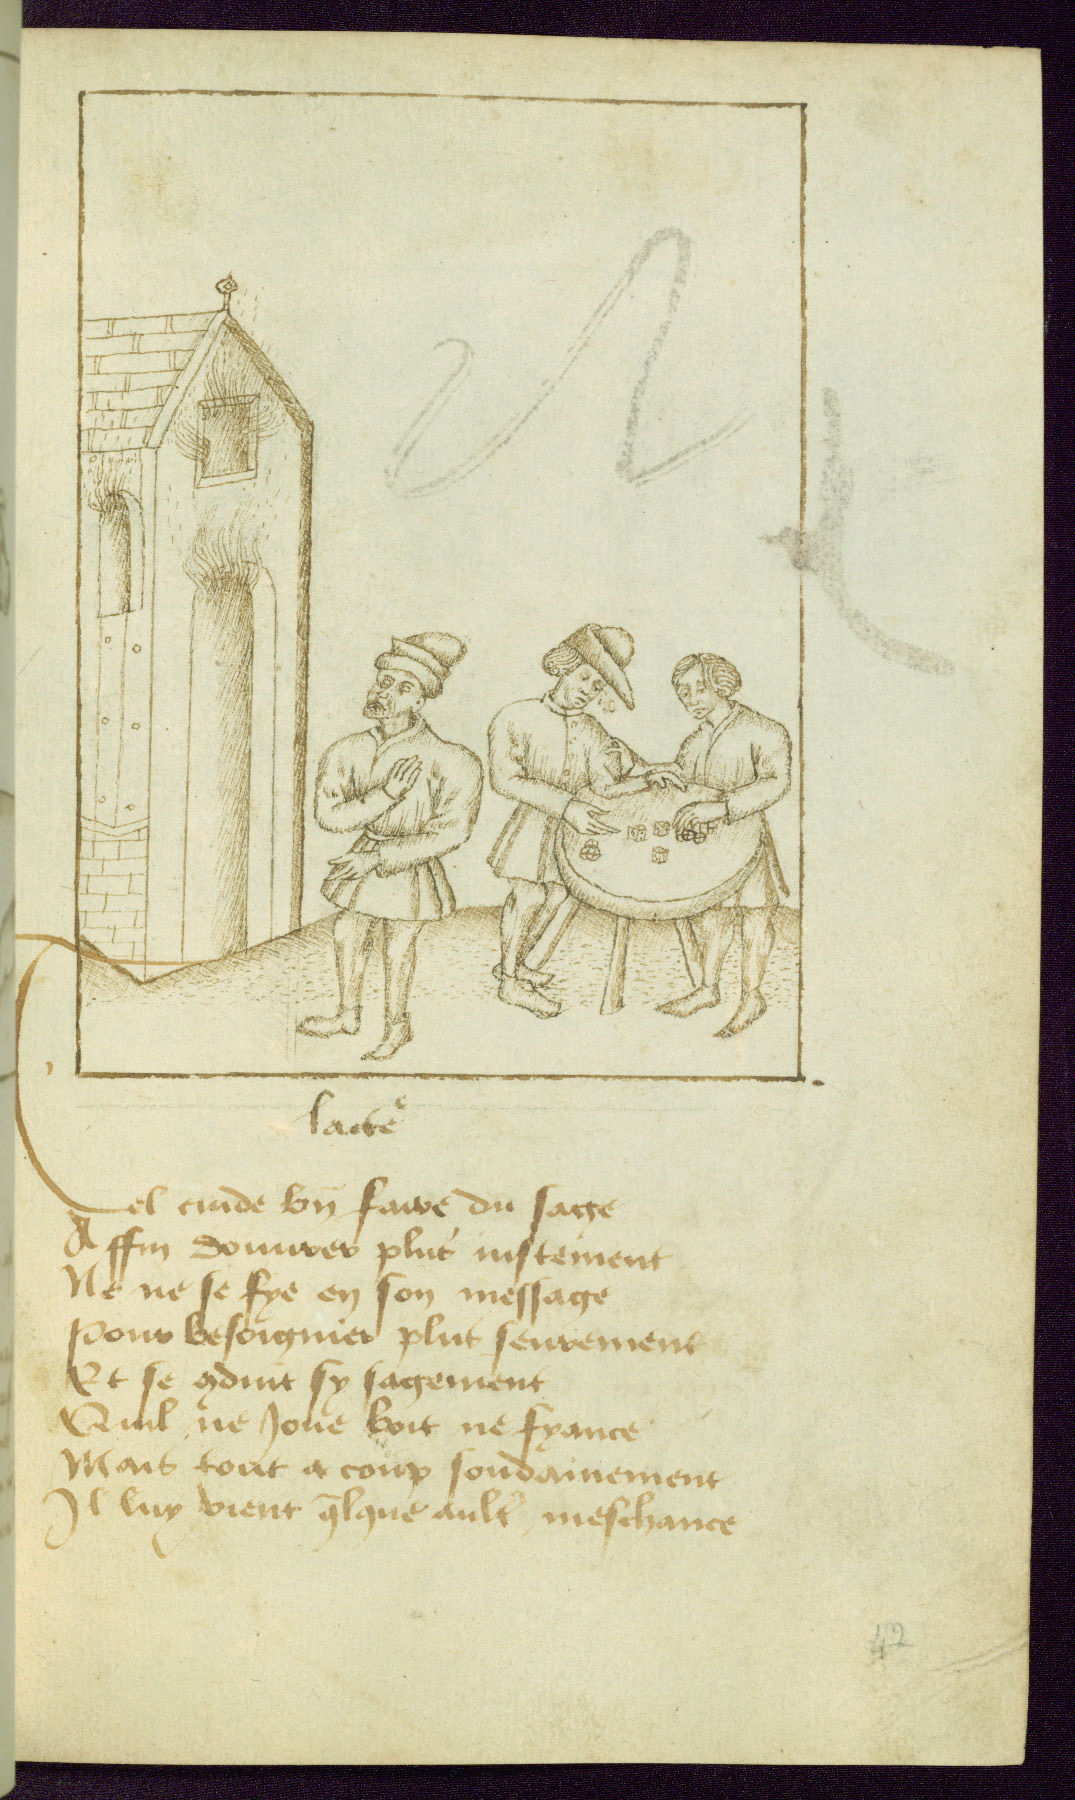 lacte
el cuide bn̄ faire du sage
Affin douurer plus iustement
Ne ne se fye en son message
Pour besoignier plus seurement
Et se ꝯduit sy sagement
Quil ne Joue boit ne fyance
Mais tout a coup soudainement
Il luy vient q̄lque ault' meschance
42